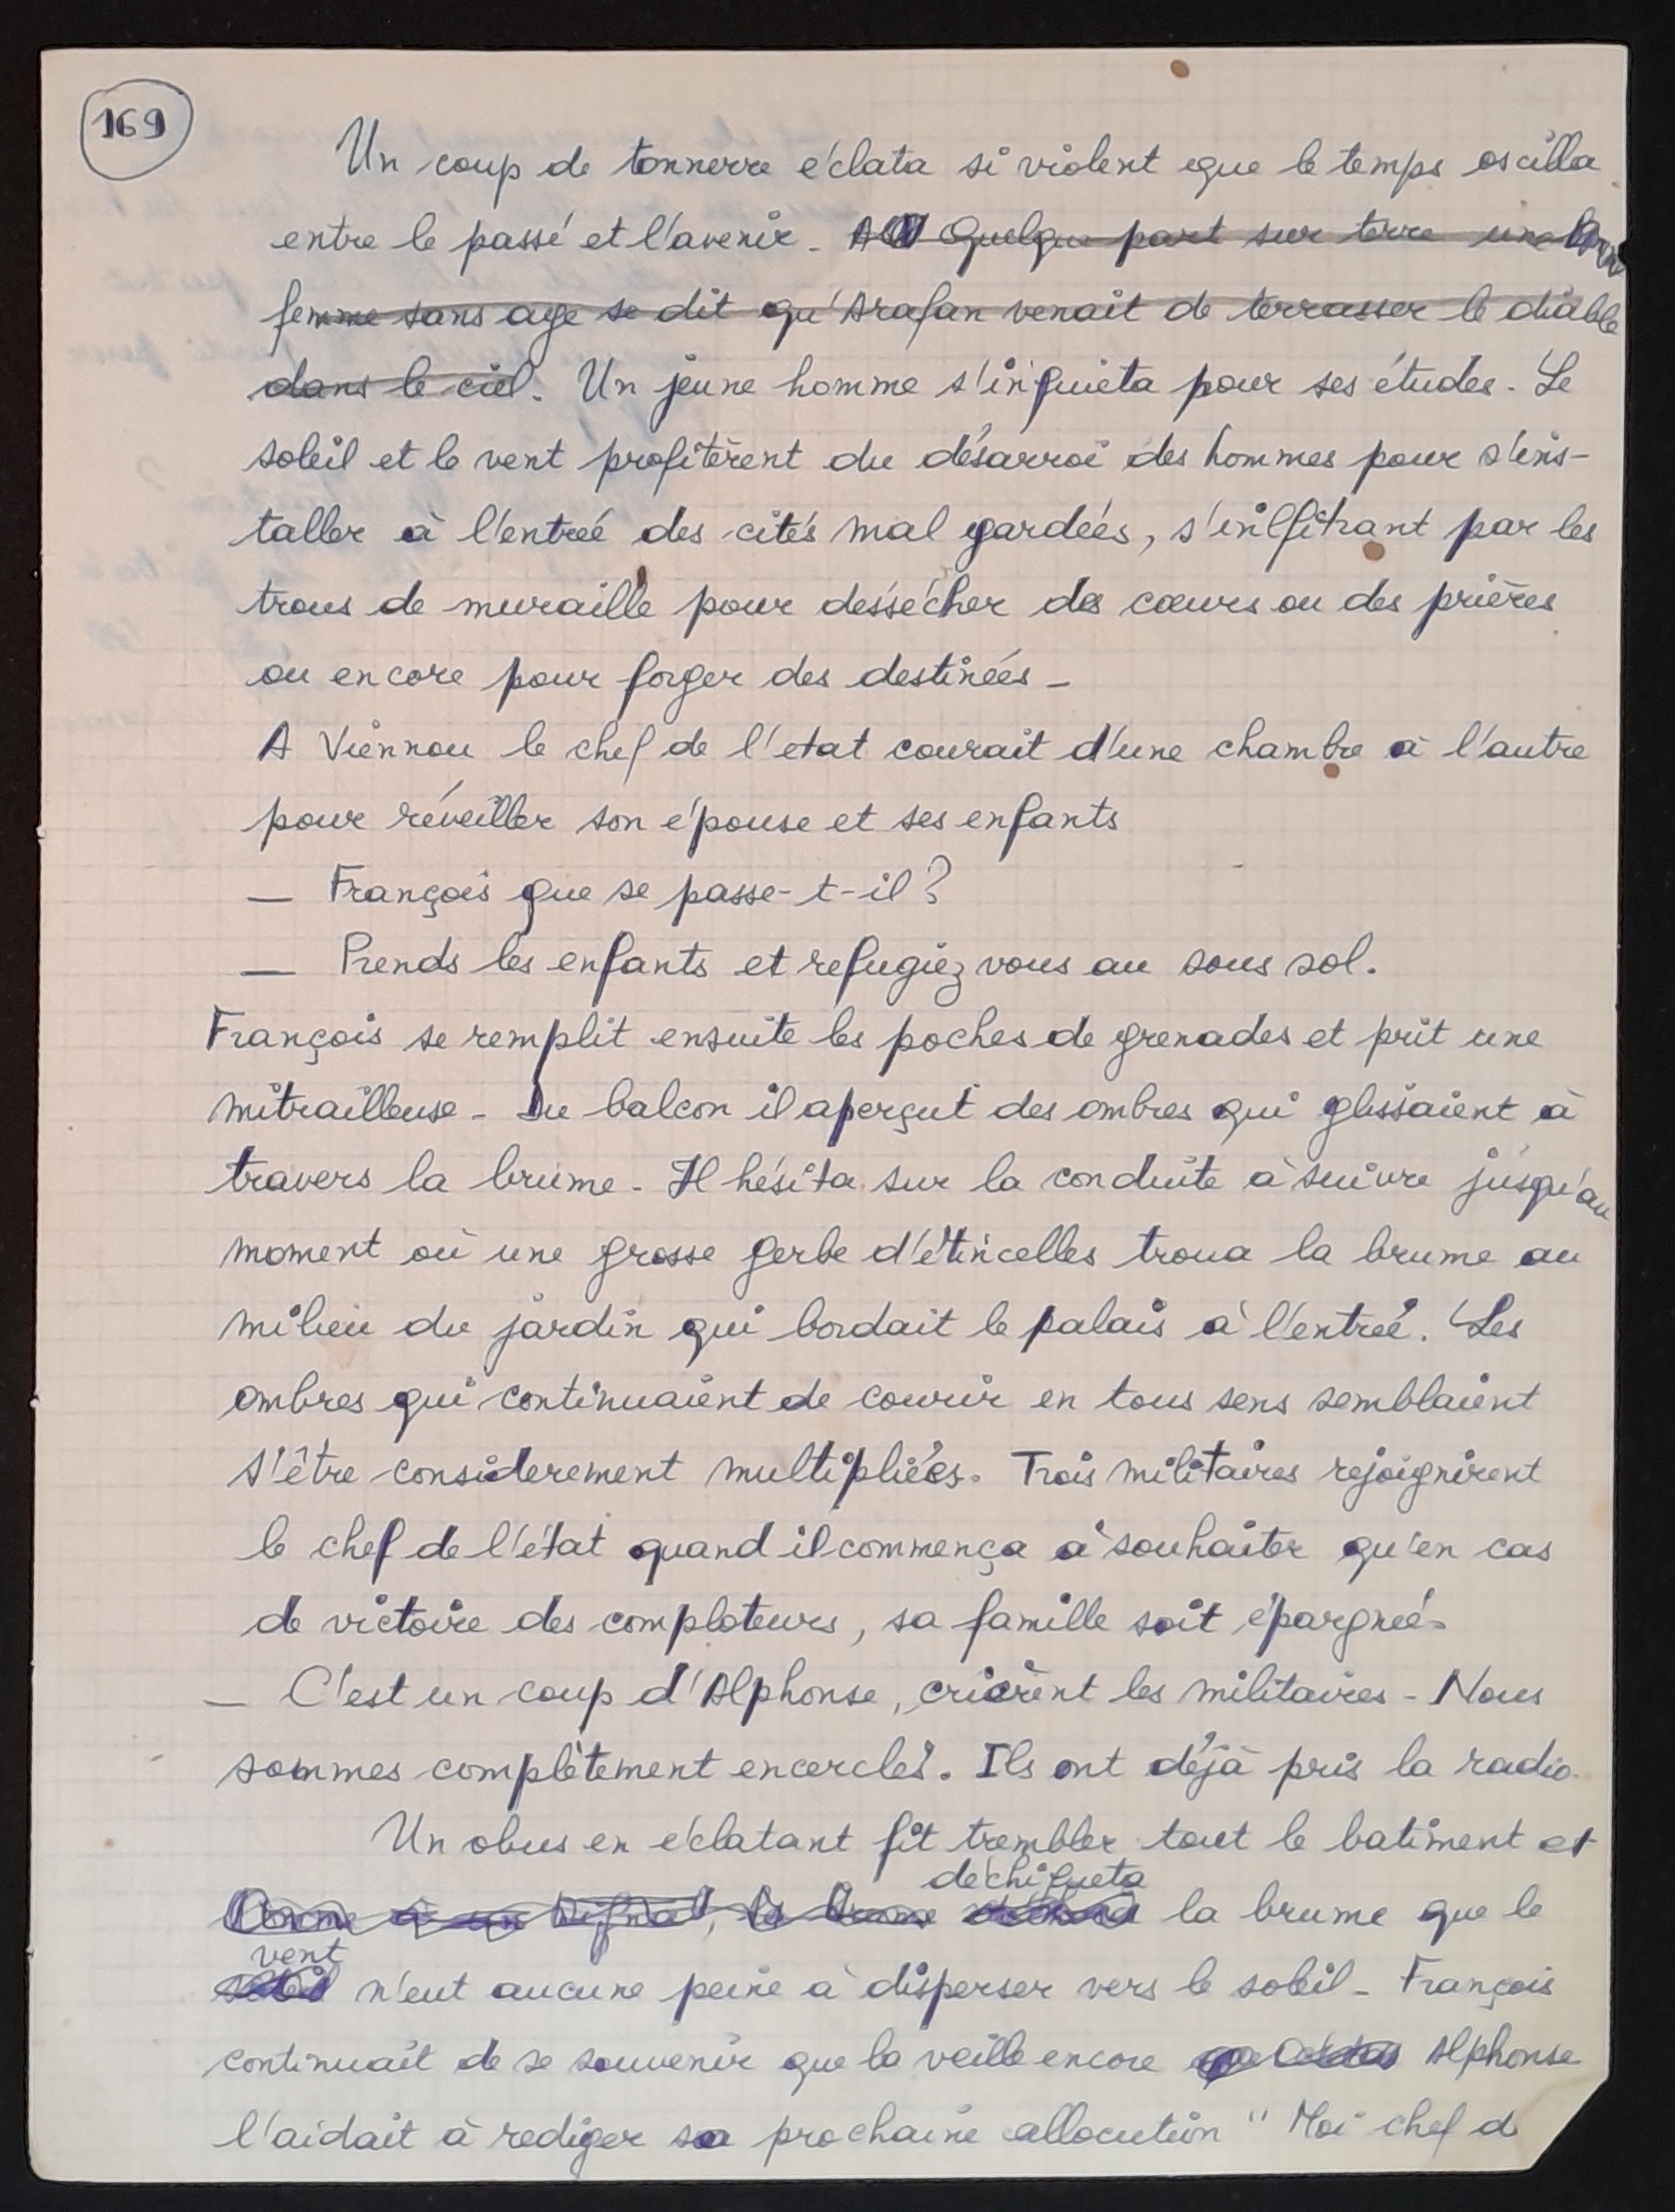 169
Un coup de tonnerre éclata si violent que le temps oscilla
entre le passé et l'avenir. Quelque part sur terre une
femme sans age se dit qu'Arafan venait de terrasser le diable
dans le ciel. Un jeune homme s'inquieta pour ses études. Le
soleil et le vent profitèrent du désarroi des hommes pour s'ins-
taller à l'entreé des cités mal gardées, s'inlfitrant par les
trous de muraille pour dessécher des cœurs ou des prières
ou encore pour forger des destinées _
A Viennou le chef de l'etat courait d'une chambre à l'autre
pour réveiller son épouse et ses enfants
_ François que se passe-t-il?
_ Prends les enfants et refugiez vous au sous sol.
François se remplit ensuite les poches de grenades et prit une
mitrailleuse - Du balcon il aperçut des ombres qui glissaient à
travers la brume - Il hésita sur la conduite à suivre jusqu'au
moment où une grosse gerbe d'étincelles troua la brume au
milieu du jardin qui bordait le palais à l'entreé. Les
ombres qui continuaient de courir en tous sens semblaient
s'être considerement multipliées. Trois militaires rejoignirent
le chef de l'état quand il commença à souhaiter qu'en cas
de victoire des comploteurs, sa famille soit épargneé.
_ C'est un coup d'Alphonse, crièrent les militaires - Nous
sommes complètement encerclés. Ils ont déjà pris la radio.
Un obus en éclatant fit trembler tout le batiment et
déchiqueta
Comme à un signal, la brume la brume que le
vent
soleil n'eut aucune peine à disperser vers le soleil - François
continuait de se souvenir que la veille encore Alphonse
l'aidait à rediger sa prochaine allocution " Moi chef d